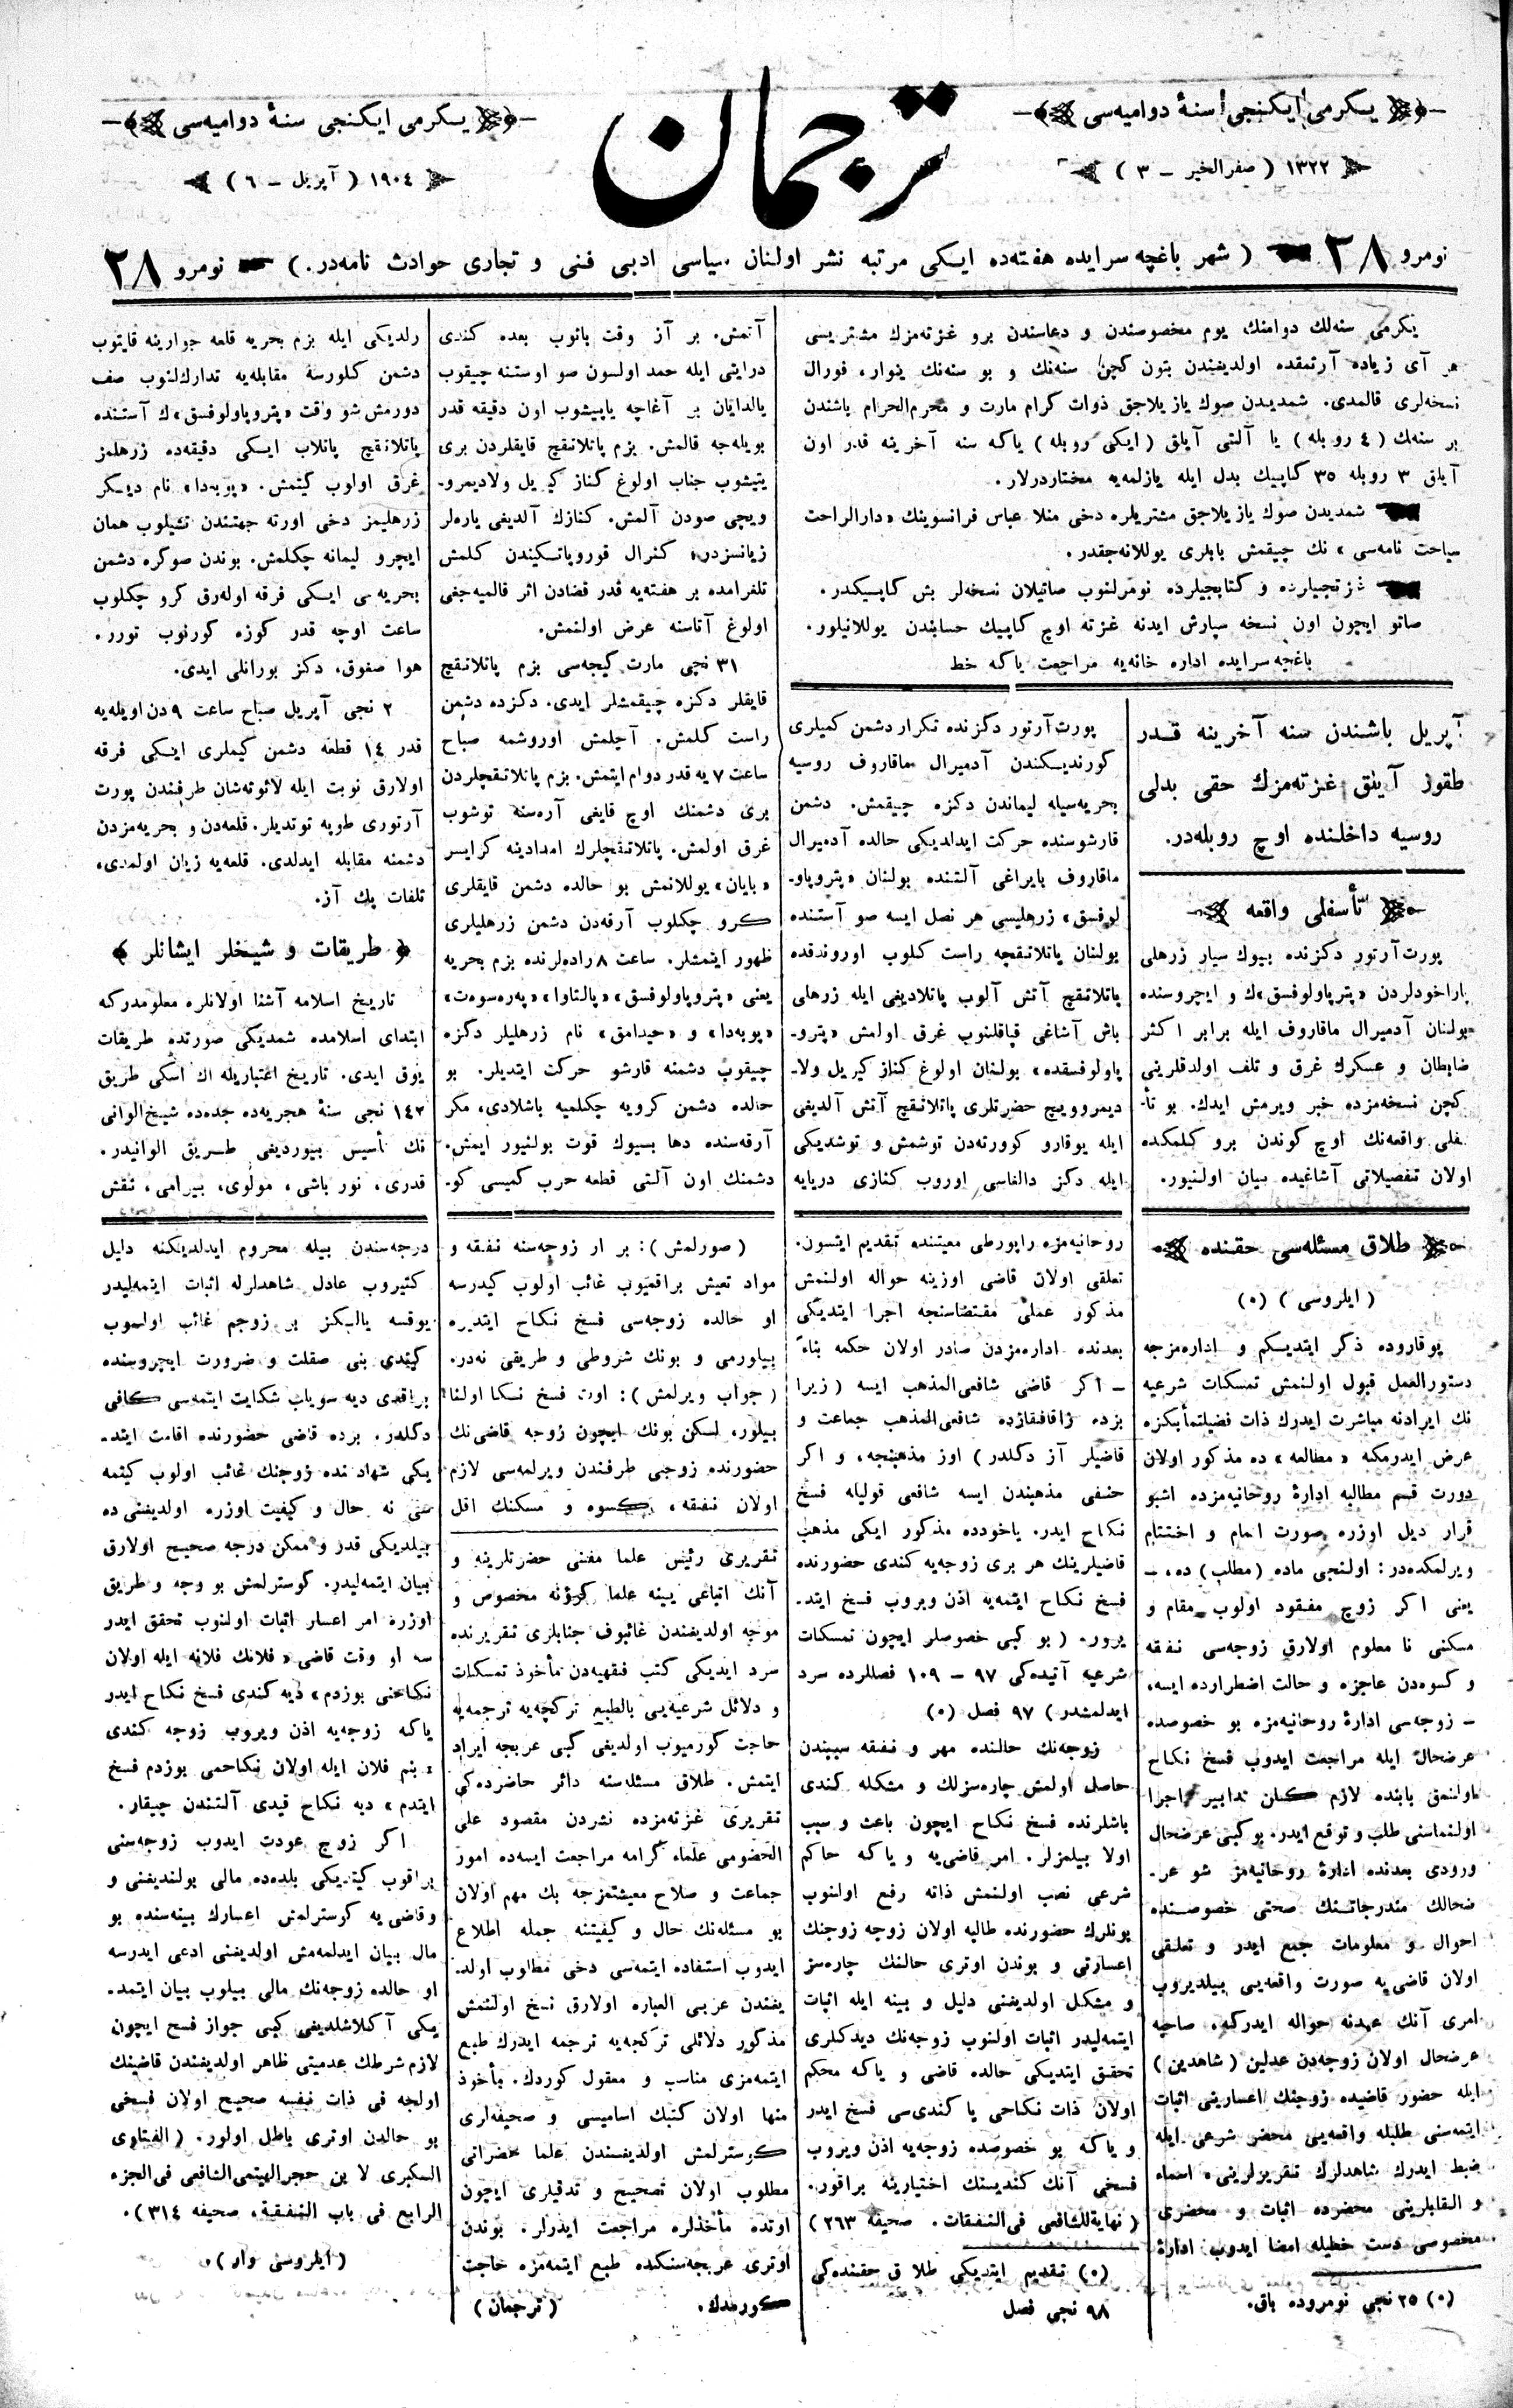 يكرمى ايكنجى سنهٔ دواميه‌سى
١٣٢٢ ( صفر الخير ــ ٣ )
ترجمان
يكرمى ايكنجى سنهٔ دواميه‌سى
١٩٠٤ ( آپريل ــ ٦ )
نومرو ٢٨ ( شهر باغچه سرايده هفته‌ده ايكى مرتبه نشر اولنان سياسى ادبى فنى و تجارى حوادث نامه‌در. ) نومرو ٢٨
يكرمى سنه‌لك دوامنك يوم مخصوصندن و دعاسندن برو غزته‌مزك مشتريسى
هر آى زياده آرتمقده اولديغندن بتون كچن سنه‌نك و بو سنه‌نك ينوار، فورال
نسخه‌لرى قالمدى. شمديدن صوك يازيلاجق ذوات كرام مارت و محرم‌الحرام باشندن
بر سنه‌لك ( ٤ روبله ) يا آلتى آيلق ( ايكى روبله ) ياكه سنه آخرينه قدر اون
آيلق ٣ روبله ٣٥ كاپيك بدل ايله يازلمه‌يه مختاردرلار.
شمديدن صوك يازيلاجق مشتريلره دخى منلا عباس فرانسوينك « دارالراحت
سياحت نامه‌سى » نك چيقمش بابلرى يوللانه‌جقدر.
غزتجيلرده و كتابجيلرده نومرلنوب صاتيلان نسخه‌لر بش كاپيكدر.
صاتو ايچون اون نسخه سپارش ايدنه غزته اوچ كاپيك حسابندن يوللانيلور.
باغچه سرايده اداره خانه‌يه مراجعت ياكه خط
آپريل باشندن سنه آخرينه قدر
طقوز آيلق غزته‌مزك حقى بدلى
روسيه داخلنده اوچ روبله‌در.
تأسفلى واقعه
پورت‌آرتور دكزنده بيوك سيار زرهلى
پاراخودلردن « پتروپاولوفسق »ك و ايچروسنده
بولنان آدميرال ماقاروف ايله برابر اكثر
ضابطان و عسكرك غرق و تلف اولدقلرينى
كچن نسخه‌مزده خبر ويرمش ايدك. بو تأ-
سفلى واقعه‌نك اوچ كوندن برو كلمكده
اولان تفصيلاتى آشاغيده بيان اولنيور.
پورت‌آرتور دكزنده تكرار دشمن كميلرى
كورنديكندن آدميرال ماقاروف روسيه
بحريه‌سيله ليماندن دكزه چيقمش. دشمن
قارشوسنده حركت ايدلديكى حالده آدميرال
ماقاروف بايراغى آلتنده بولنان « پتروپاو-
لوفسق » زرهليسى هر نصل ايسه صو آستنده
بولنان پاتلانقچه راست كلوب اوروندقده
پاتلانقچ آتش آلوب پاتلاديغى ايله زرهلى
باش آشاغى قپاقلنوب غرق اولمش « پترو-
پاولوفسقده » بولنان اولوغ كناز كيريل ولا-
ديمروويچ حضرتلرى پاتلانقچ آتش آلديغى
ايله يوقارو كوورته‌دن توشمش و توشديكى
ايله دكز دالغاسى اوروب كنازى دريايه
آتمش. بر آز وقت باتوب بعده كندى
درايتى ايله حمد اولسون صو اوستنه چيقوب
يالدايان بر آغاچه ياپيشوب اون دقيقه قدر
بويله‌جه قالمش. بزم پاتلانقچ قايقلردن برى
يتيشوب جناب اولوغ كناز كيريل ولاديمرو-
ويچى صودن آلمش. كنازك آلديغى ياره‌لر
زيانسزدر، كنرال قوروپاتكيندن كلمش
تلغرامده بر هفته‌يه قدر قضادن اثر قالميه‌جغى
اولوغ آتاسنه عرض اولنمش.
٣١ نجى مارت كيجه‌سى بزم پاتلانقچ
قايقلر دكزه چيقمشلر ايدى. دكزده دشمن
راست كلمش. آچلمش اوروشمه صباح
ساعت ٧ يه قدر دوام ايتمش. بزم پاتلانقچلردن
برى دشمنك اوچ قايغى آره‌سنه توشوب
غرق اولمش. پاتلانقچلرك امدادينه كرايسر
« بايان » يوللانمش بو حالده دشمن قايقلرى
كرو چكلوب آرقه‌دن دشمن زرهليلرى
ظهور ايتمشلر. ساعت ٨ راده‌لرنده بزم بحريه
يعنى « پتروپاولوفسق » « پالتاوا » « په‌ره‌سوه‌ت »
« پوبه‌دا » و « حيدامق » نام زرهليلر دكزه
چيقوب دشمنه قارشو حركت ايتديلر. بو
حالده دشمن كرويه چكلميه باشلادى، مكر
آرقه‌سنده دها بيوك قوت بولنيور ايمش.
دشمنك اون آلتى قطعه حرب كميسى كو-
رلديكى ايله بزم بحريه قلعه جوارينه قايتوب
دشمن كلورسه مقابله‌يه تدارك‌لنوب صف
دورمش شو وقت « پتروپاولوفسق »ك آستنده
پاتلانقچ پاتلاب ايكى دقيقه‌ده زرهلمز
غرق اولوب گيتمش. « پوبه‌دا » نام ديكر
زرهليمز دخى اورته جهتندن تشيلوب همان
ايچرو ليمانه چكلمش. بوندن صوكره دشمن
بحريه‌سى ايكى فرقه اوله‌رق كرو چكلوب
ساعت اوچه قدر كوزه كورنوب تورر.
هوا صفوق، دكز بورانلى ايدى.
٢ نجى آپريل صباح ساعت ٩ دن اويله‌يه
قدر ١٤ قطعه دشمن كيملرى ايكى فرقه
اولارق نوبت ايله لائوته‌شان طرفندن پورت
آرتورى طوپه توتديلر. قلعه‌دن و بحريه‌مزدن
دشمنه مقابله ايدلدى. قلعه‌يه زيان اولمدى،
تلفات پك آز.
﴿ طريقات و شيخلر ايشانلر ﴾
تاريخ اسلامه آشنا اولانلره معلومدركه
ابتداى اسلامده شمديكى صورتده طريقات
يوق ايدى. تاريخ اعتباريله اك اسكى طريق
١٤٢ نجى سنهٔ هجريه‌ده جده‌ده شيخ الوانى
نك تأسيس بيورديغى طريق الوانيدر.
قدرى، نور باشى، مولوى، بيرامى، نقش
طلاق مسئله‌سى حقنده
( ايلروسى ) (٠)
يوقاروده ذكر ايتديكم و اداره‌مزجه
دستورالعمل قبول اولنمش تمسكات شرعيه
نك ايرادنه مباشرت ايدرك ذات فضيلتمأبكزه
عرض ايدرمكه « مطالعه » ده مذكور اولان
دورت قسم مطالبه ادارهٔ روحانيه‌مزده اشبو
قرار ديل اوزره صورت انجام و اختتام
ويرلمكده‌در: اولنجى ماده ( مطلب ) ده، ــ
يعنى اكر زوج مفقود اولوب مقام و
مسكنى نا معلوم اولارق زوجه‌سى نفقه
و كسوه‌دن عاجزه و حالت اضطرارده ايسه،
ــ زوجه‌سى ادارهٔ روحانيه‌مزه بو خصوصده
عرضحال ايله مراجعت ايدوب فسخ نكاح
اولنمق بابنده لازم كلن تدابير اجرا
اولنماسنى طلب و توقع ايدر. بو كبى عرضحال
ورودى بعدنده ادارهٔ روحانيه‌مز شو عر-
ضحالك مندرجاتنك صحتى خصوصنده
احوال و معلومات جمع ايدر و تعلقى
اولان قاضى‌يه صورت واقعه‌يى بيلديروب
امرى آنك عهدنه حواله ايدركه، صاحبه
عرضحال اولان زوجه‌دن عدلين ( شاهدين )
ايله حضور قاضيده زوجنك اعسارينى اثبات
ايتمه‌سنى طلبله واقعه‌يى محضر شرعى ايله
ضبط ايدرك شاهدلرك تقريرلرينى، اسماء
و القابلرينى محضرده اثبات و محضرى
مخصوصى دست خطيله امضا ايدوب ادارهٔ
(٠) ٢٥ نجى نومروده باق.
روحانيه‌مزه راپورطى معيتنده تقديم ايتسون.
تعلقى اولان قاضى اوزينه حواله اولنمش
مذكور عملى مقتضاسنجه اجرا ايتديكى
بعدنده اداره‌مزدن صادر اولان حكمه بناءً
ــ اكر قاضى شافعى‌المذهب ايسه ( زيرا
بزده زاقافقازده شافعى‌المذهب جماعت و
قاضيلر آز دكلدر ) اوز مذهبنجه، و اكر
حنفى مذهبندن ايسه شافعى قوليله فسخ
نكاح ايدر. ياخودده مذكور ايكى مذهب
قاضيلرينك هر برى زوجه‌يه كندى حضورنده
فسخ نكاح ايتمه‌يه اذن ويروب فسخ ايتد-
يرور. ( بو كبى خصوصلر ايچون تمسكات
شرعيه آتيده‌كى ٩٧ ــ ١٠٩ فصللرده سرد
ايدلمشدر ) ٩٧ فصل (٠)
زوجه‌نك حالنده مهر و نفقه سببندن
حاصل اولمش چاره‌سزلك و مشكله كندى
باشلرنده فسخ نكاح ايچون باعث و سبب
اولا بيلمزلر. امر قاضى‌يه و ياكه حاكم
شرعى نصب اولنمش ذاته رفع اولنوب
بونلرك حضورنده طالبه اولان زوجه زوجنك
اعسارنى و بوندن اوترى حالنك چاره‌سز
و مشكل اولديغنى دليل و بينه ايله اثبات
ايتمه‌ليدر اثبات اولنوب زوجه‌نك ديدكلرى
تحقق ايتديكى حالده قاضى و ياكه محكم
اولان ذات نكاحى يا كندى‌سى فسخ ايدر
و ياكه بو خصوصده زوجه‌يه اذن ويروب
فسخى آنك كندينك اختيارينه براقور.
( نهاية للشافعى فى‌النفقات. صحيفه ٢٦٣ )
(٠) تقديم ايتديكى طلاق حقنده‌كى
٩٨ نجى فصل
( صورلمش ): بر ار زوجه‌سنه نفقه و
مواد تعيش براقميوب غائب اولوب كيدرسه
او حالده زوجه‌سى فسخ نكاح ايتديره
بيلورمى و بونك شروطى و طريقى نه‌در.
( جواب ويرلمش ): اوت فسخ نكاح اولنا
بيلور، لكن بونك ايچون زوجه قاضى‌نك
حضورنده زوجى طرفندن ويرلمه‌سى لازم
اولان نفقه، كسوه و مسكنك اقل
تقريرى رئيس علما مفتى حضرتلرينه و
آنك اتباعى يينه علما كروٗنه مخصوص و
موجه اولديغندن غائبوف جنابلرى تقريرنده
سرد ايديكى كتب فقهيه‌دن مأخوذ تمسكات
و دلائل شرعيه‌يى بالطبع تركچه‌يه ترجمه‌يه
حاجت كورميوب اولديغى كبى عربجه ايراد
ايتمش. طلاق مسئله‌سنه دائر حاضرده‌كى
تقريرى غزته‌مزده نشردن مقصود على
الخصوص علماء كرامه مراجعت ايسه‌ده امور
جماعت و صلاح معيشتمزجه بك مهم اولان
بو مسئله‌نك حال و كيفيتنه جمله اطلاع
ايدوب استفاده ايتمه‌سى دخى مطلوب اولد-
يغندن عربى العباره اولارق نسخ اولنمش
مذكور دلائلى تركجه‌يه ترجمه ايدرك طبع
ايتمه‌مزى مناسب و معقول كوردك. مأخوذ
منها اولان كتبك اساميسى و صحيفه‌لرى
كوسترلمش اولديغندن علما حضراتى
مطلوب اولان تصحيح و تدقيقلرى ايچون
اوتده مأخذلره مراجعت ايدرلر. بوندن
اوترى عربجه‌سنكده طبع ايتمه‌مزه حاجت
كورمدك. ( ترجمان )
درجه‌سندن بيله محروم ايدلديكنه دليل
كتيروب عادل شاهدلرله اثبات ايتمه‌ليدر
يوقسه يالكز بر زوجم غائب اولوب
كيتدى بنى صقلت و ضرورت ايچروسنده
براقدى ديه سويلاب شكايت ايتمه‌سى كافى
دكلدر. برده قاضى حضورنده اقامت ايتد-
يكى شهادتنده زوجنك غائب اولوب كيتمه
سى نه حال و كيفيت اوزره اولديغنى ده
بيلديكى قدر و ممكن درجه صحيح اولارق
بيان ايتمه‌ليدر. كوسترلمش بو وجه و طريق
اوزره امر اعسار اثبات اولنوب تحقق ايدر
سه او وقت قاضى « فلانك فلانه ايله اولان
نكاحنى بوزدم » ديه كندى فسخ نكاح ايدر
ياكه زوجه‌يه اذن ويروب زوجه كندى
« بنم فلان ايله اولان نكاحمى بوزدم فسخ
ايتدم » ديه نكاح قيدى آلتندن چيقار.
اكر زوج عودت ايدوب زوجه‌سنى
براقوب كيتديكى بلده‌ده مالى بولنديغنى و
وقاضى‌يه كوسترلمش اعسارك بينه‌سنده بو
مال بيان ايدلمه‌مش اولديغنى ادعى ايدرسه
او حالده زوجه‌نك مالى بيلوب بيان ايتمد-
يكى آكلاشلديغى كبى جواز فسخ ايچون
لازم شرطك عدميتى ظاهر اولديغندن قاضينك
اولجه فى ذات نفسه صحيح اولان فسخى
بو حالدن اوترى باطل اولور. ( الفتاوى
الكبرى لابن حجر الهيتمى الشافعى فى الجزء
الرابع فى باب النفقية، صحيفه ٣١٤ ).
( ايلروسى وار )